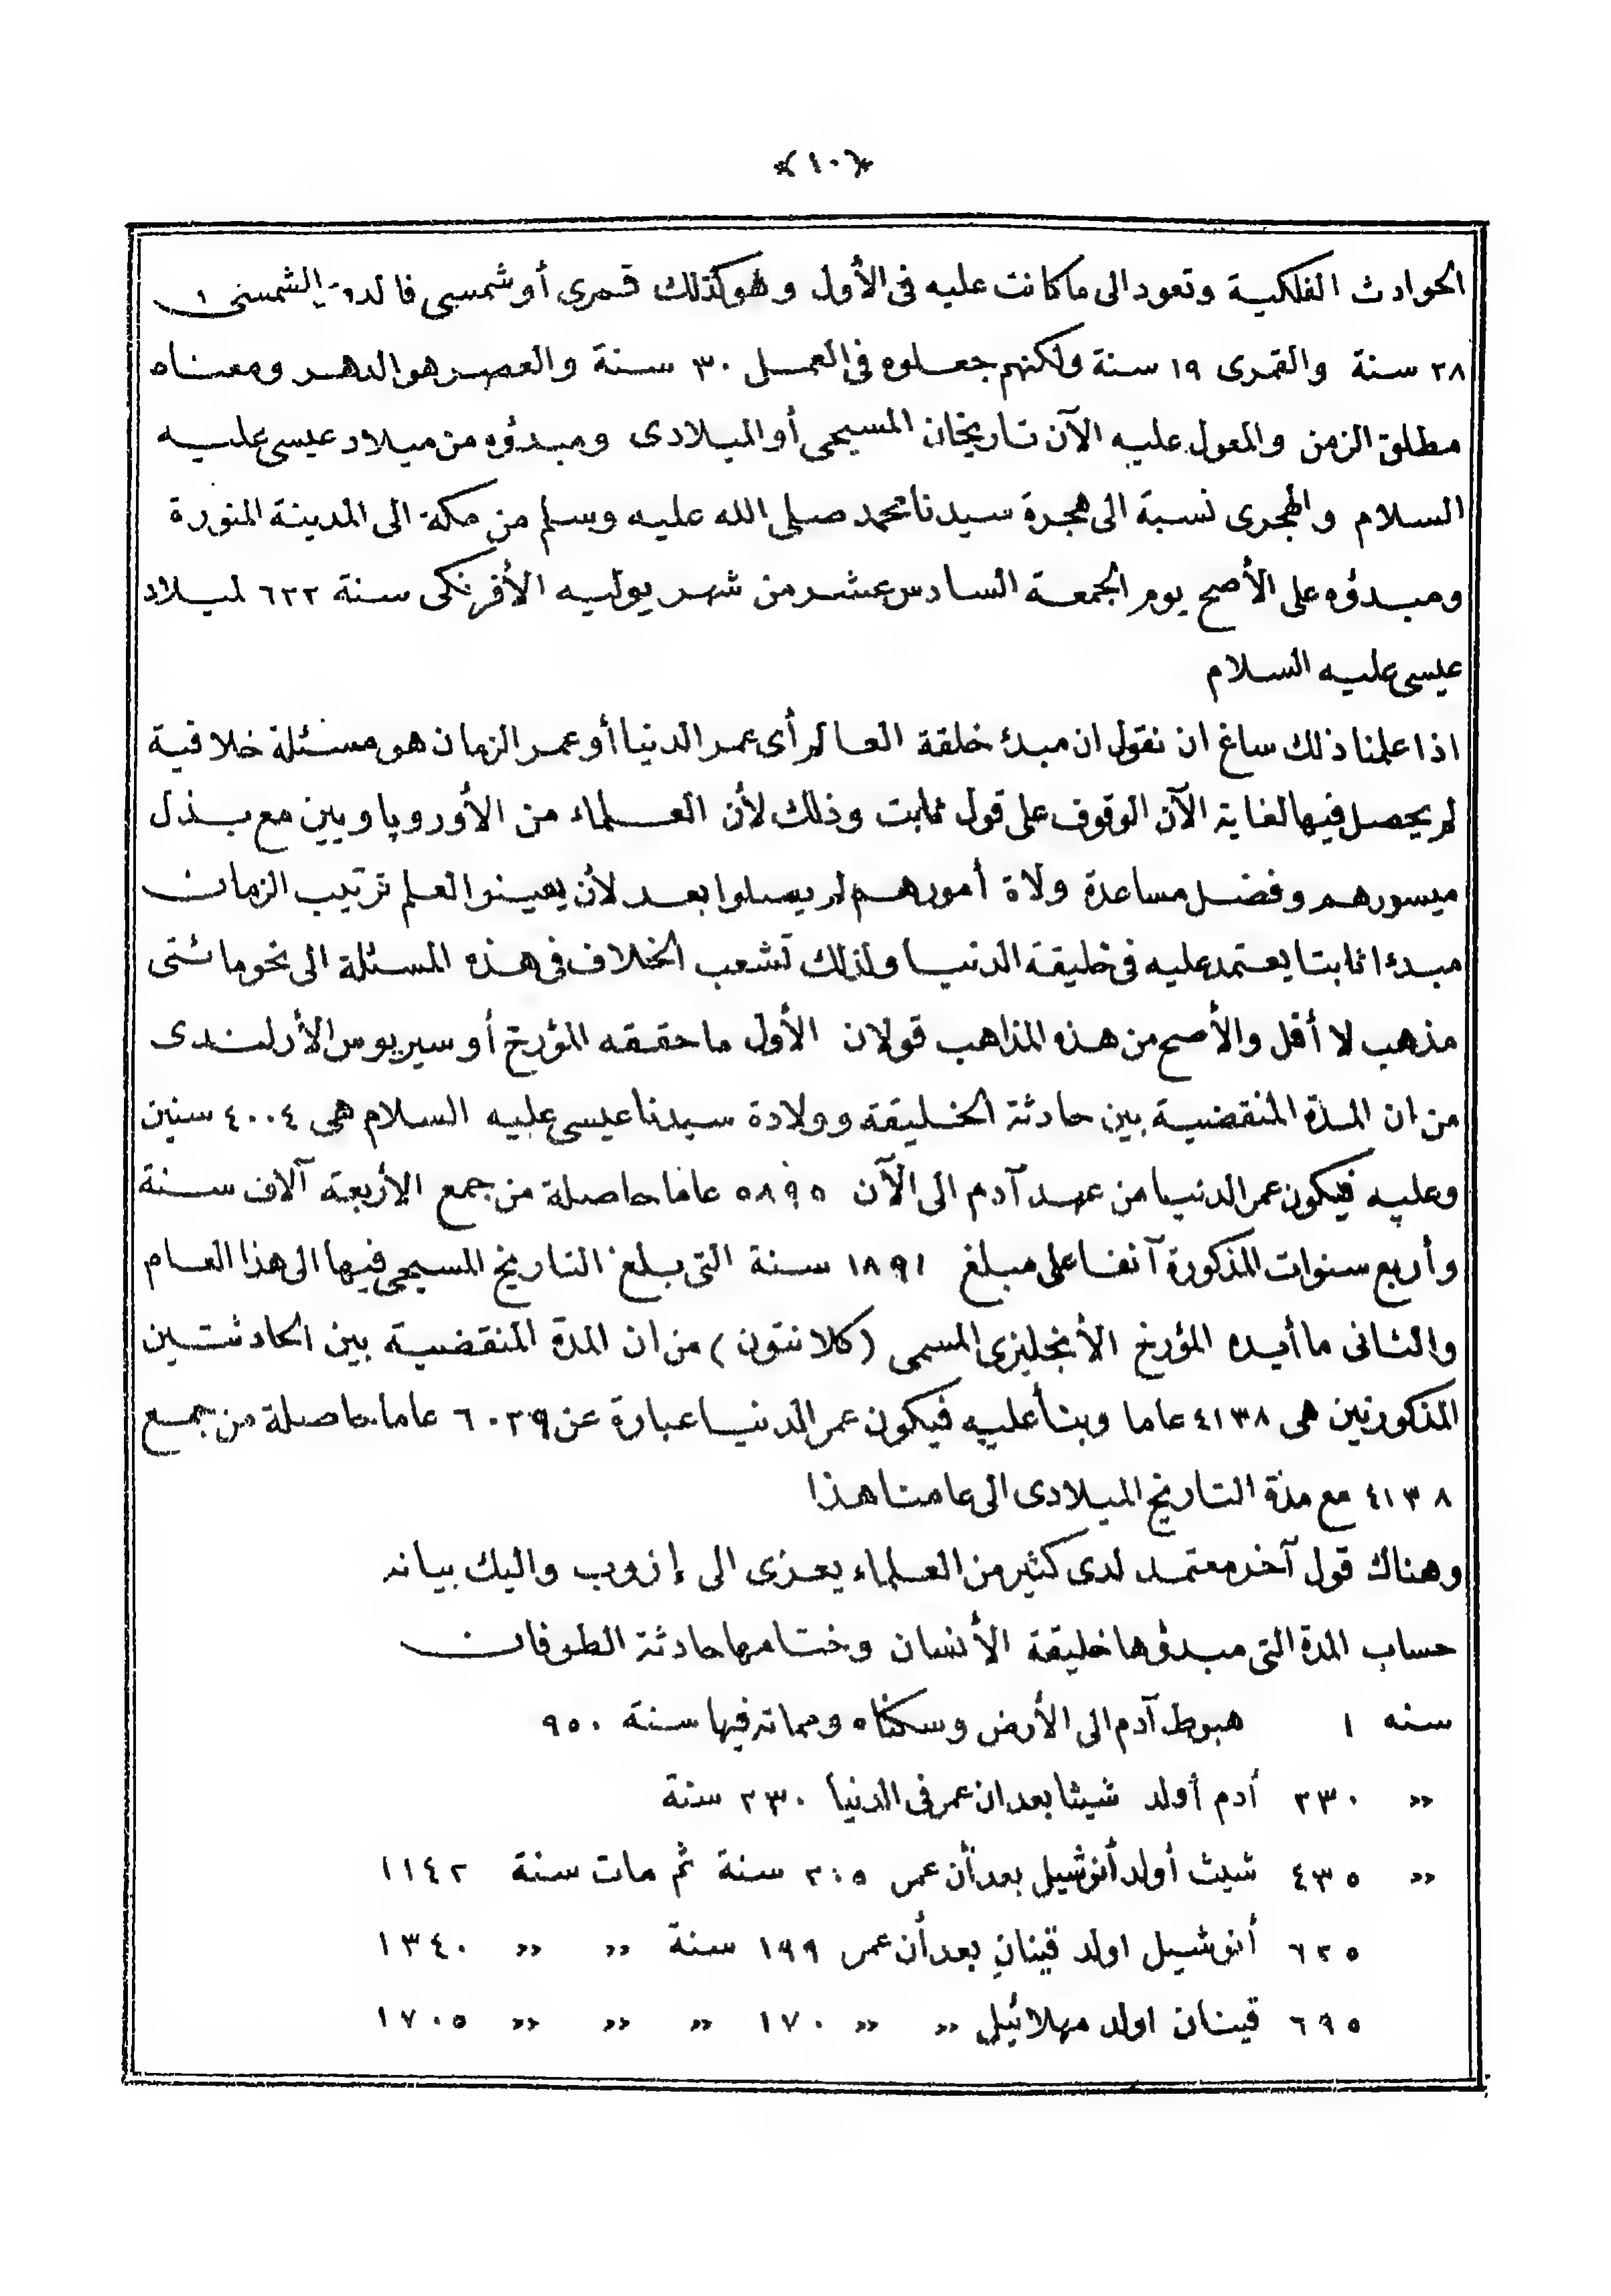 ﴿١٠﴾
الحوادث الفلكية وتعود الى ما كانت عليه فى الأول وهو كذلك قمرى أو شمسى فالدور الشمسى
٢٨ سنة والقمرى ١٩ سنة ولكنهم جعلوه فى العمل ٣٠ سنة والعصر هو الدهر ومعناه
مطلق الزمن والمعول عليه الآن تاريخان المسيحى أو الميلادى ومبدؤه من ميلاد عيسى عليه
السلام والهجرى نسبة الى هجرة سيدنا محمد صلى الله عليه وسلم من مكة الى المدينة المنورة
ومبدؤه على الأصح يوم الجمعة السادس عشر من شهر يوليه الأفرنكى سنة ٦٢٢ لميلاد
عيسى عليه السلام
اذا علمنا ذلك ساغ ان نقول ان مبدئ خلقة العالم أى عمر الدنيا أو عمر الزمان هو مسئلة خلافية
لم يحصل فيها لغاية الآن الوقوف على قول ثابت وذلك لأن العلماء من الأوروپاويين مع بذل
ميسورهم وفضل مساعدة ولاة أمورهم لم يصلوا بعد لأن يعينوا لعلم ترتيب الزمان
مبدءا ثابتا يعتمد عليه فى خليقة الدنيا ولذلك تشعب الخلاف فى هذه المسئلة الى نحو مائتى
مذهب لا أقل والأصح من هذه المذاهب قولان الأول ما حققه المؤرخ أوسيريوس الأرلندى
من ان المدة المنقضية بين حادثة الخليقة وولادة سيدنا عيسى عليه السلام هى ٤٠٠٤ سنين
وعليه فيكون عمر الدنيا من عهد آدم الى الآن ٥٨٩٥ عاما حاصلة من جمع الأربعة آلاف سنة
وأربع سنوات المذكورة آنفا على مبلغ ١٨٩١ سنة التى بلغ التاريخ المسيحى فيها الى هذا العام
والثانى ما أيده المؤرخ الأنجليزى المسمى (كلانتون) من ان المدة المنقضية بين الحادثتين
المذكورتين هى ٤١٣٨ عاما وبنأ عليه فيكون عمر الدنيا عبارة عن ٦٠٢٩ عاما حاصلة من جمع
٤١٣٨ مع مدة التاريخ الميلادى الى عامنا هذا
وهناك قول آخر معتمد لدى كثير من العلماء يعزى الى إزوب واليك بيانه
حساب المدة التى مبدؤها خليقة الأنسان وختامها حادثة الطوفان
سنه ١ هبوط آدم الى الأرض وسكناه ومماته فيها سنة ٩٥٠
» ٢٣٠ أدم أولد شيثا بعد ان عمر فى الدنيا ٢٣٠ سنة
» ٤٣٥ شيث أولد أنوشيل بعد أن عمر ٢٠٥ سنة ثم مات سنة ١١٤٢
٦٢٥ أنوشيل اولد قينان بعد أن عمر ١٩٩ سنة » » ١٣٤٠
٦٩٥ قينان اولد مهلائيل » » ١٧٠ » » » ١٧٠٥